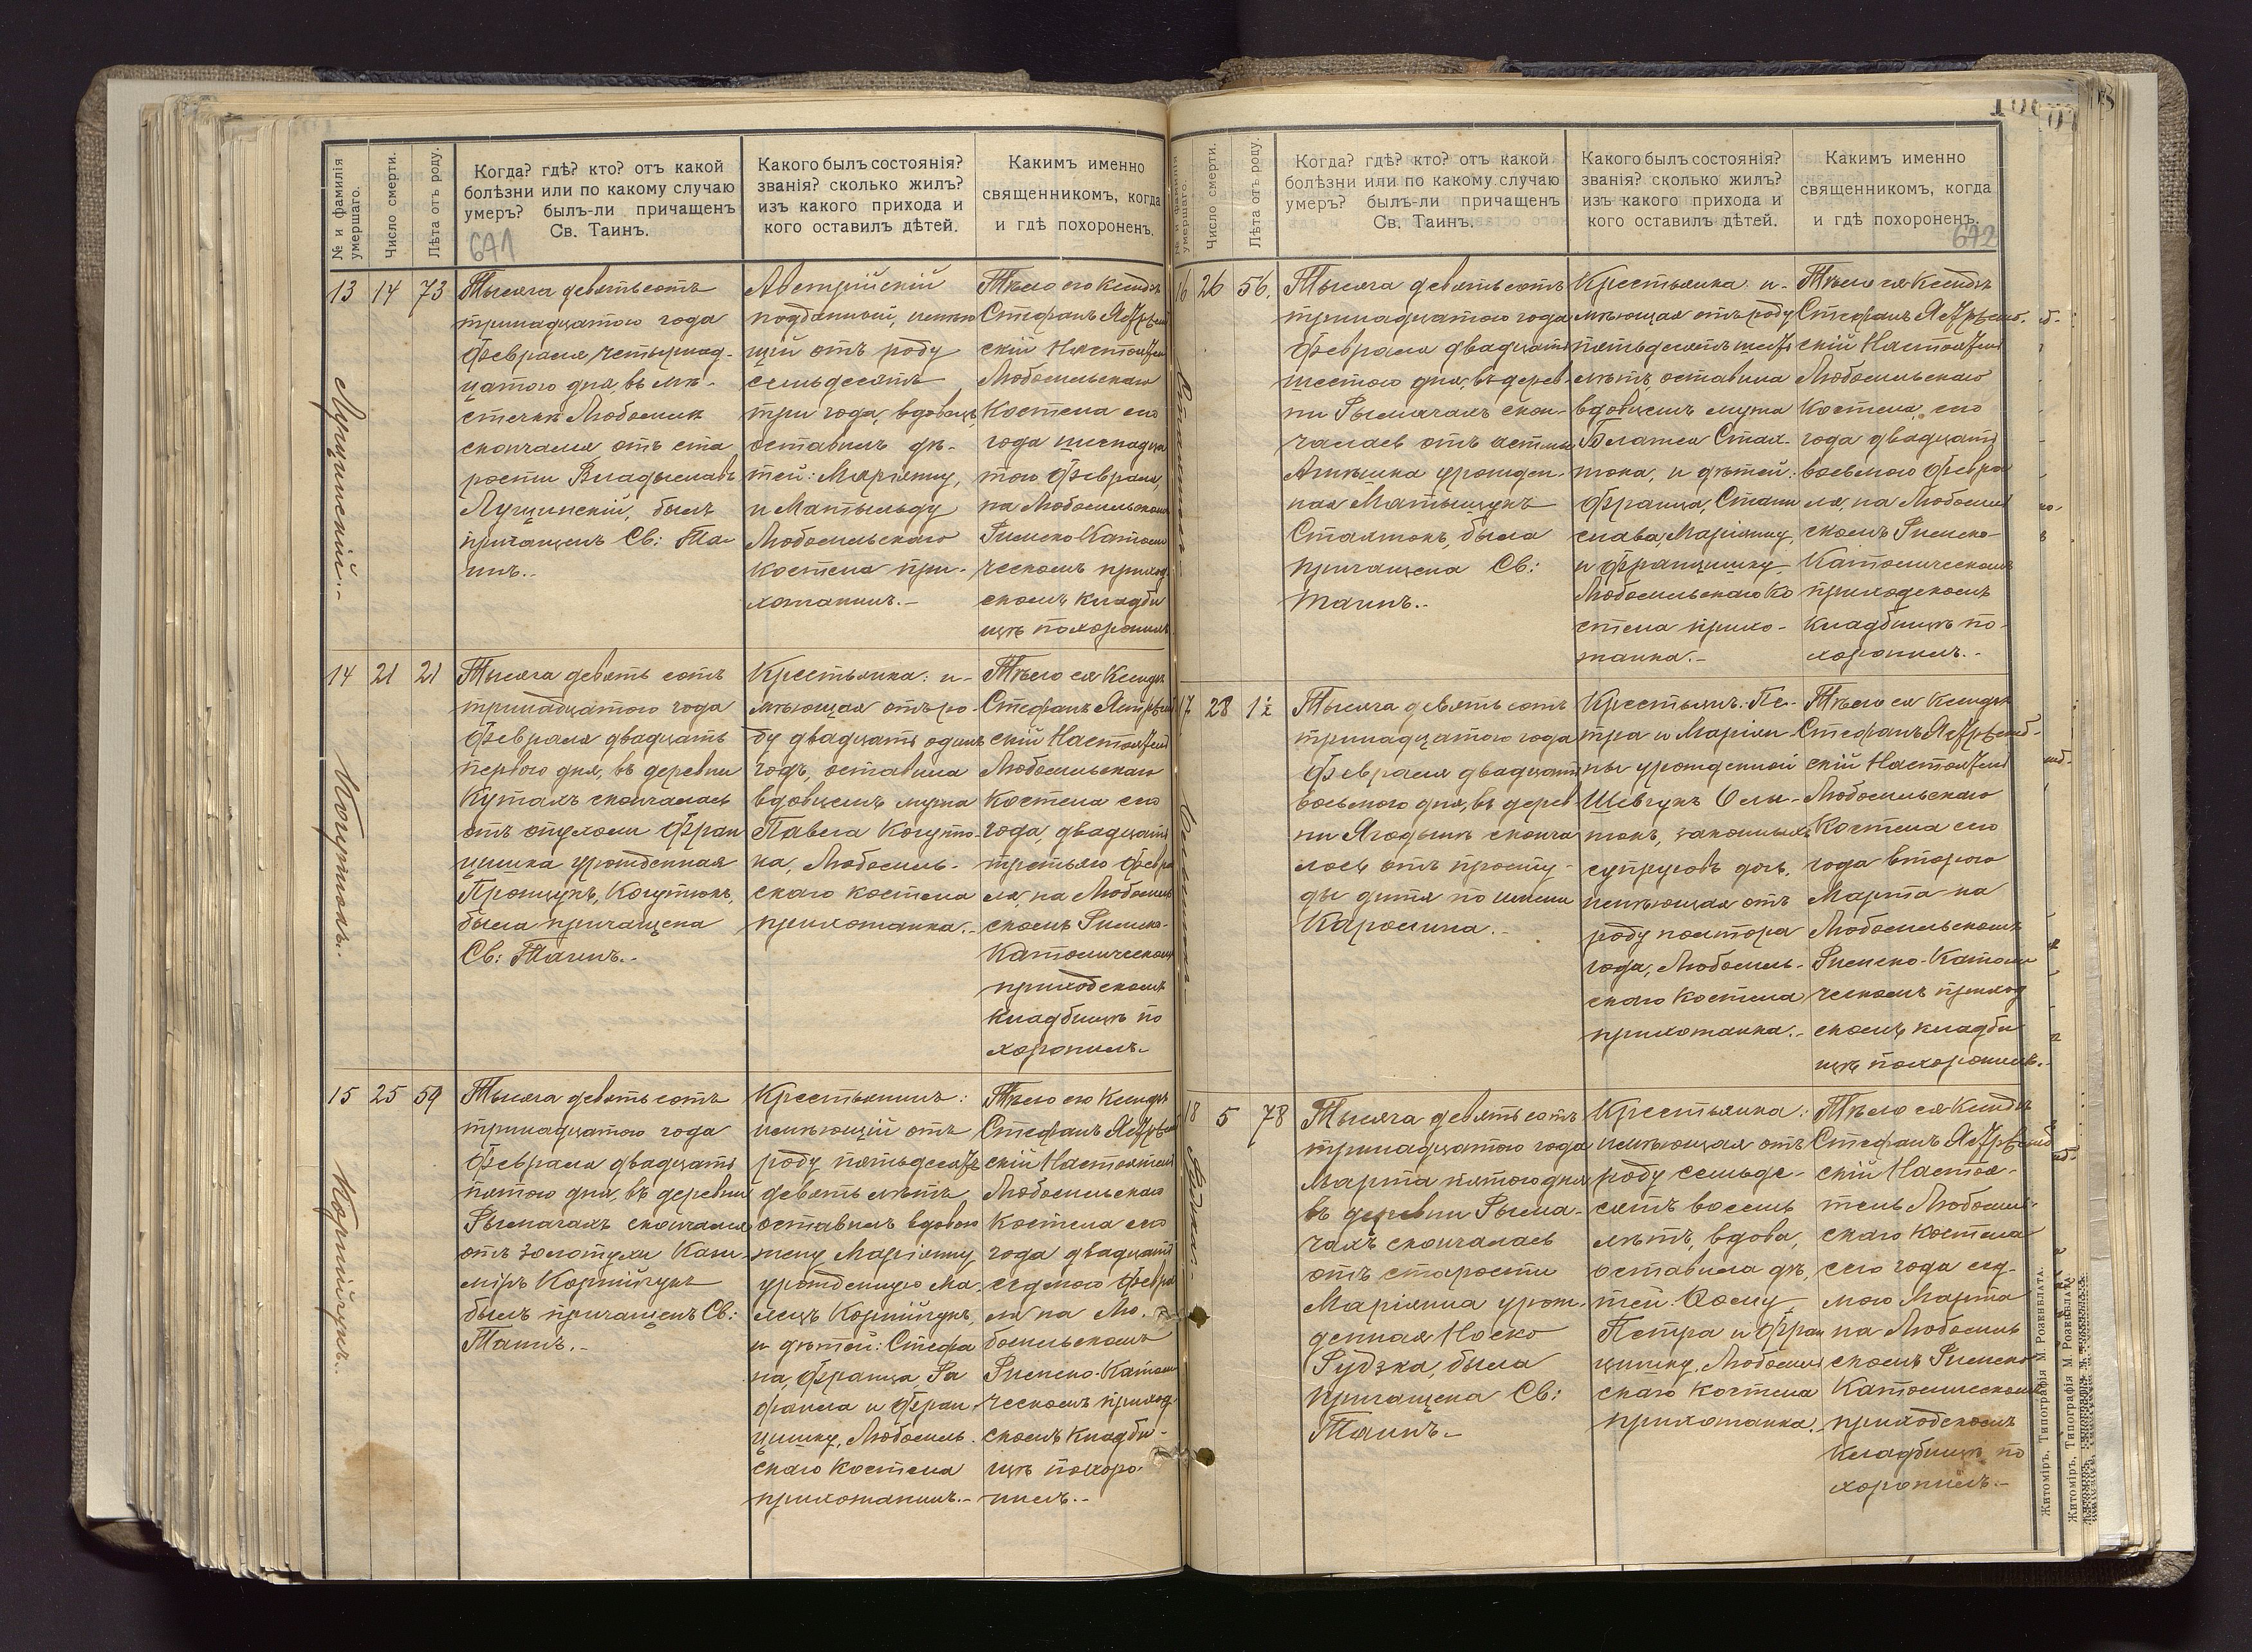 № и фамилія умершаго.
Число смерти.
Лѣта отъ роду.
Когда? гдѣ? кто? отъ какой
болѣзни или по какому случаю
умеръ? былъ-ли причащенъ
Св. Таинъ.
671
Какого былъ состоянія?
званія? сколько жилъ?
изъ какого прихода и
кого оставилъ дѣтей.
Какимъ именно
священникомъ, когда
и гдѣ похороненъ.
13 14 73
Лущинскій.-
Тысяча девятьсотъ
тринадцатого года
Февраля четырнад-
цатого дня, въ мѣ-
стечкѣ Любомлѣ
скончался отъ ста
рости Владыславъ
Лущинскій, былъ
причащенъ Св: Та-
инъ.-
Австрійскій
подданный, имѣю
щій отъ роду
семьдесятъ
три года, вдовецъ,
оставилъ дѣ-
тей: Маріянну,
и Матыльду
Любомльскаго
костела при-
хожанинъ.-
Тѣло его Ксендзъ
Стефанъ Ястржем
скій Настоятель
Любомльскаго
Костела сего
года шеснадца
того Февраля,
на Любомльскомъ
Римско Католи
ческомъ приход-
скомъ кладби
щѣ похоронилъ
14 21 21
Когутюкъ.
Тысяча девять сотъ
тринадцатого года
Февраля двадцать
перваго дня, въ деревни
Кутахъ скончалась
отъ опухоли Фран
цишка урожденная
Прощукъ, Когутюкъ,
была причащена
Св: Таинъ.-
Крестьянка: и-
мѣющая отъ ро-
ду двадцать одинъ
годъ, оставила
вдовцемъ мужа
Павла Когутю-
ка, Любомль-
скаго костела
прихожанка.-
Тѣло ея Ксендзъ
Стефанъ Ястржем
скій Настоятель
Любомльскаго
Костела сего
года, двадцать
третьяго Февра
ля, на Любомль
скомъ Римско-
Католическомъ
приходскомъ
кладбищѣ по
хоронилъ.
15 25 59
Корнійчукъ.
Тысяча девятьсотъ
тринадцатого года
Февраля двадцать
пятого дня, въ деревни
Рымачахъ скончался
отъ золотухи Кази-
міръ Корнійчукъ
былъ причащенъ Св:
Таинъ.-
Крестьянинъ:
имѣющій отъ
роду пятьдесятъ
девять лѣтъ,
оставилъ вдовою
жену Маріянну
урожденную Ма-
лецъ Корнійчукъ,
и дѣтей: Стефа
на, Франца, Ра
фаила и Фран-
цишку, Любомль-
скаго Костела
прихожанинъ.-
Тѣло его Ксендзъ
Стефанъ Ястржем
скій Настоятель
Любомльскаго
Костела сего
года двадцать
седмого Февра
ля на Лю-
бомльскомъ
Римско-Католи
ческомъ приход-
скомъ кладби-
щѣ похоро-
нилъ.-
№ и фамилія умершаго.
Число смерти.
Лѣта отъ роду.
Когда? гдѣ? кто? отъ какой
болѣзни или по какому случаю
умеръ? былъ-ли причащенъ
Св. Таинъ.
Какого былъ состоянія?
званія? сколько жилъ?
изъ какого прихода и
кого оставилъ дѣтей.
Какимъ именно
священникомъ, когда
и гдѣ похороненъ.
672
16 26 56.
Тысяча девятьсотъ
тринадцатого года
Февраля двадцать
шестого дня, въ дерев-
ни Рымачахъ скон-
чалась отъ астмы
Агнѣшка урожден-
ная Матыщукъ
Стаятюкъ, была
причащена Св:
Таинъ.-
Крестьянка и-
мѣющая отъ роду
пятьдесятъ шесть
лѣтъ, оставила
вдовцемъ мужа
Блажея Стая-
тюка, и дѣтей:
Франца, Стани
слава, Маріянну,
и Францишку
Любомльскаго Ко
стела прихо-
жанка.-
Тѣло ея Ксендзъ
Стефанъ Ястржем-
скій Настоятель
Любомльскаго
Костела, сего
года двадцать
восьмого Февра
ля, на Любомль
скомъ Римско-
Католическомъ
приходскомъ
Кладбищѣ по-
хоронилъ.-
17 28 1½
Тысяча девять сотъ
тринадцатого года
Февраля двадцать
восьмого дня, въ дерев
ни Ягодынѣ сконча
лось отъ просту-
ды дитя по имени
Каролина.-
Крестьянъ: Пе-
тра и Маріян
ны урожденной
Шевчукъ
законныхъ
супруговъ дочь,
имѣющая отъ
роду полтора
года, Любомль-
скаго Костела
прихожанка.-
Тѣло ея Ксендзъ
Стефанъ Ястржемб-
скій Настоятель
Любомльскаго
Костела сего
года второго
Марта на
Любомльскомъ
Римско-Католи
ческомъ приход
скомъ кладби
щѣ похоронилъ.-
18 5 78
Рудзка.-
Тысяча девятьсотъ
тринадцатого года
Марта пятого дня
въ деревни Рыма-
чахъ скончалась
отъ старости
Маріянна урож-
денная Носко
Рудзка, была
причащена Св:
Таинъ.-
Крестьянка:
имѣющая отъ
роду семьде-
сятъ восемь
лѣтъ, вдова,
оставила дѣ-
тей:
Петра и Фран
цишку, Любомль
скаго Костела
прихожанка.-
Тѣло ея Ксендзъ
Стефанъ Ястржемб
скій Настоя-
тель Любомль-
скаго Костела
сего года сед-
мого Марта
на Любомль
скомъ Римско
Католическомъ
приходскомъ
Кладбищѣ по
хоронилъ.-
Житоміръ, Типографія М. Розенблата.
Житоміръ, Типографія М. Розенблата.